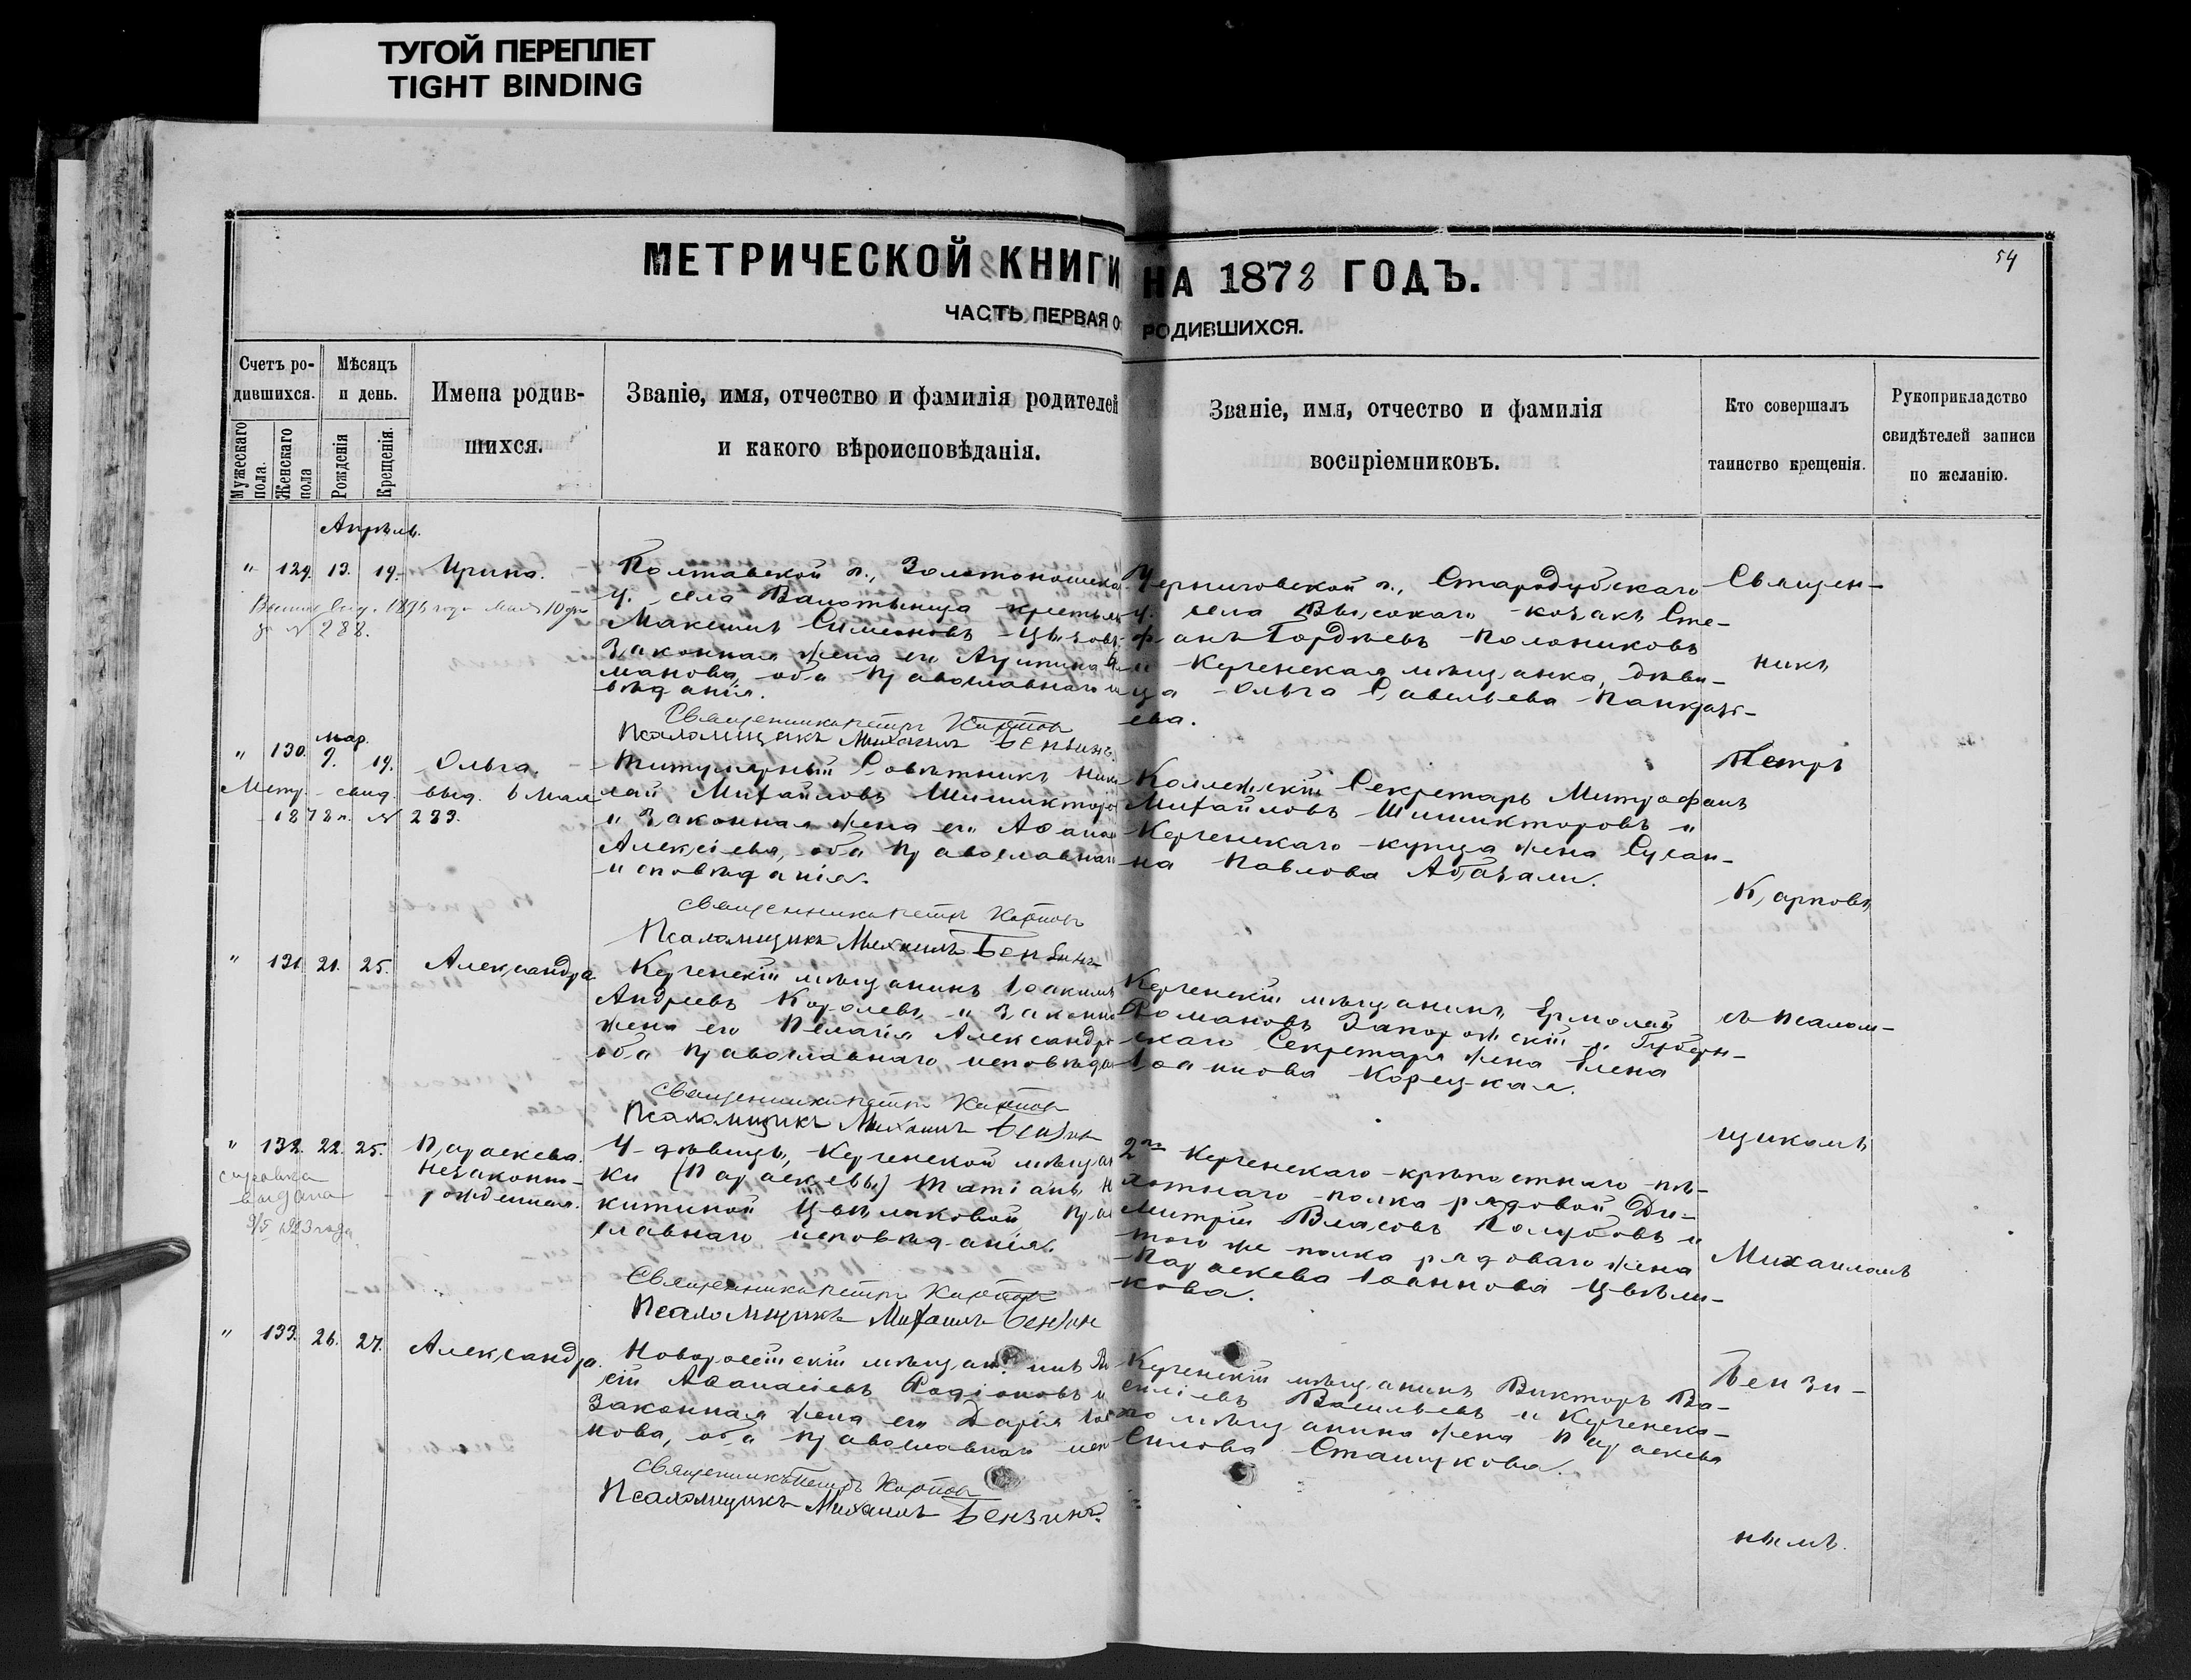 ТУГОЙ ПЕРЕПЛЕТ
TIGHT BINDING
МЕТРИЧЕСКОЙ КНИГИ НА 1878 ГОДЪ.
54
ЧАСТЬ ПЕРВАЯ О РОДИВШИХСЯ.
Счетъ ро-
дившихся.
Мужескаго пола.
Женскаго пола
Мѣсяцъ
и день.
Рожденія
Крещенія.
Имена родив-
шихся.
Званіе, имя, отчество и фамилія родителей
и какого вѣроисповѣданія.
Званіе, имя, отчество и фамилія
воспріемниковъ.
Кто совершалъ
таинство крещенія.
Рукоприкладство
свидѣтелей записи
по желанію.
Апрѣль.
" 129. 13. 19. Ирина.
№ 288.
Полтавской г., Золотоношска
у. села
Максимъ Симеоновъ
Законная жена его
манова, оба православнаго и
вѣданія.
Священникъ Петръ Карповъ
Псаломщикъ Михаилъ Бензинъ.
Черниговской г., Стародубскаго
у. села Высокаго козакъ Сте-
фанъ Гордѣевъ Полониковъ
и Керченская мѣщанка, дѣви-
ца Ольга Савельева Панкрать-
ева.
Священ-
никъ
мар.
" 130. 9. 19. Ольга.
Метр. свид. выд. 6 Мая
1878 г. № 283.
Титулярный Совѣтникъ Нико
лай Михайловъ Шишикторо
и законная жена его Афана
Алексіева, оба православнаго
исповѣданія.
Священникъ Петръ Карповъ
Псаломщикъ Михаилъ Бензинъ
Коллежскій Секретарь Митрофанъ
Михайловъ Шишикторовъ и
Керченскаго купца жена Сусан-
на Павлова Абазали.
Петръ
Карповъ
" 131. 21. 25. Александра
Керченскій мѣщанинъ Іоакимъ
Андреевъ Королевъ и законна
жена его Пелагія Александро
оба православнаго исповѣдан
Священникъ Петръ Карповъ
Псаломщикъ Михаилъ Бензинъ
Керченскій мѣщанинъ Ермолай
Романовъ Запорожскій и Губерн-
скаго Секретаря жена Елена
Іоаннова Корецкая.
съ псалом-
щикомъ
" 132. 22. 25. Параскева.
незаконно-
рожденная.
справка
выдана
9/5 1923 года
У дѣвицы, Керченской мѣщан
ки (Параскевы) Татіаны Н
китиной Цвиляковой, прав
славнаго исповѣданія.
Священникъ Петръ Карповъ
Псаломщикъ Михаилъ Бензин
2го Керченскаго крѣпостнаго пѣ-
хотнаго полка рядовой Ди-
митрій Власовъ Голубовъ и
того же полка рядоваго жена
Параскева Іоаннова Цвѣли-
кова.
Михаиломъ
" 133. 26. 27. Александра.
Новороссійскій мѣщанинъ
сій Афанасіевъ Родіоновъ и
Законная жена его Дарія Іоа
нова, оба православнаго исп
Священникъ Петръ Карповъ
Псаломщикъ Михаилъ Бензинъ.
Керченскій мѣщанинъ Викторъ Ва-
силіевъ Васильевъ и Керченска-
го мѣщанина жена Параскева
Силова Сташукова.
Бензи-
нымъ.